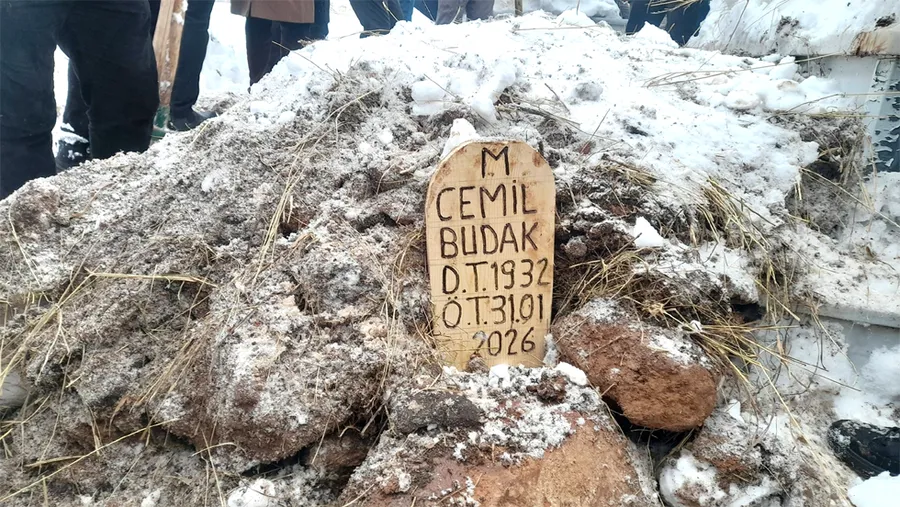 M
CEMİL
BUDAK
D.T.1932
Ö.T.31.01
2026